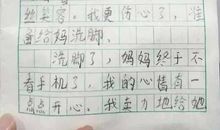 些失落。我更伤心了，准
备给妈洗脚。
洗脚了，妈妈终于不
看手机了，我的心情有一
点点开心。我卖力地给她